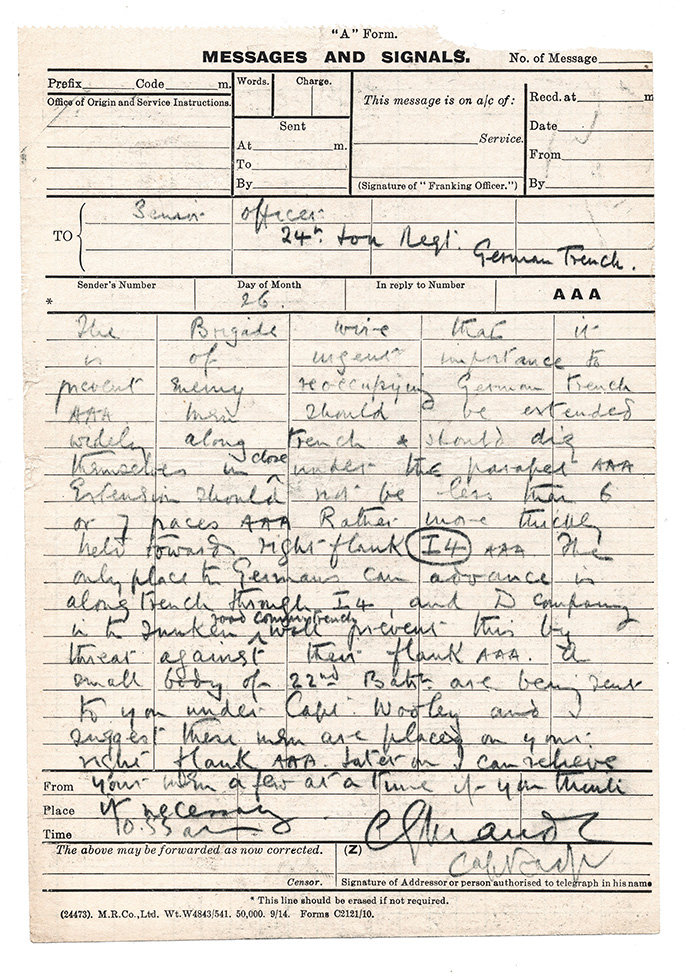 "A" Form.
MESSAGES AND SIGNALS. No. of Message
Prefix Code m. Words. Charge. This message is on a/c of: Recd. at m
Office of Origin and Service Instructions. Sent Service. Date
At m. From
To
By (Signature of "Franking Officer.") By
TO Senior officer
24th Lon Regt. German Trench.
Sender's Number Day of Month In reply to Number AAA
* 26.
The Brigade wire that it
is of urgent importance to
prevent enemy reoccupying German trench
AAA men should be extended
widely along trench & should dig
themselves in close under the parapet AAA
Extension should not be less than 6
or 7 paces AAA Rather more thickly
held towards right flank I4 AAA The
only place the Germans can advance is
along trench through I4 and D company
in the sunken road commn trench will prevent this by
threat against their flank AAA. A
small body of 22nd Battn are being sent
to you under Capt. Wooley and I
suggest these men are placed on your
right flank AAA. Later on I can relieve
From your men a few at a time if you think
Place it necessary
Time 10.55 am
The above may be forwarded as now corrected. (Z) Capt
Censor. Signature of Addressor or person authorised to telegraph in his name
* This line should be erased if not required.
(24473). M.R.Co., Ltd. Wt.W4843/541. 50,000. 9/14. Forms C2121/10.